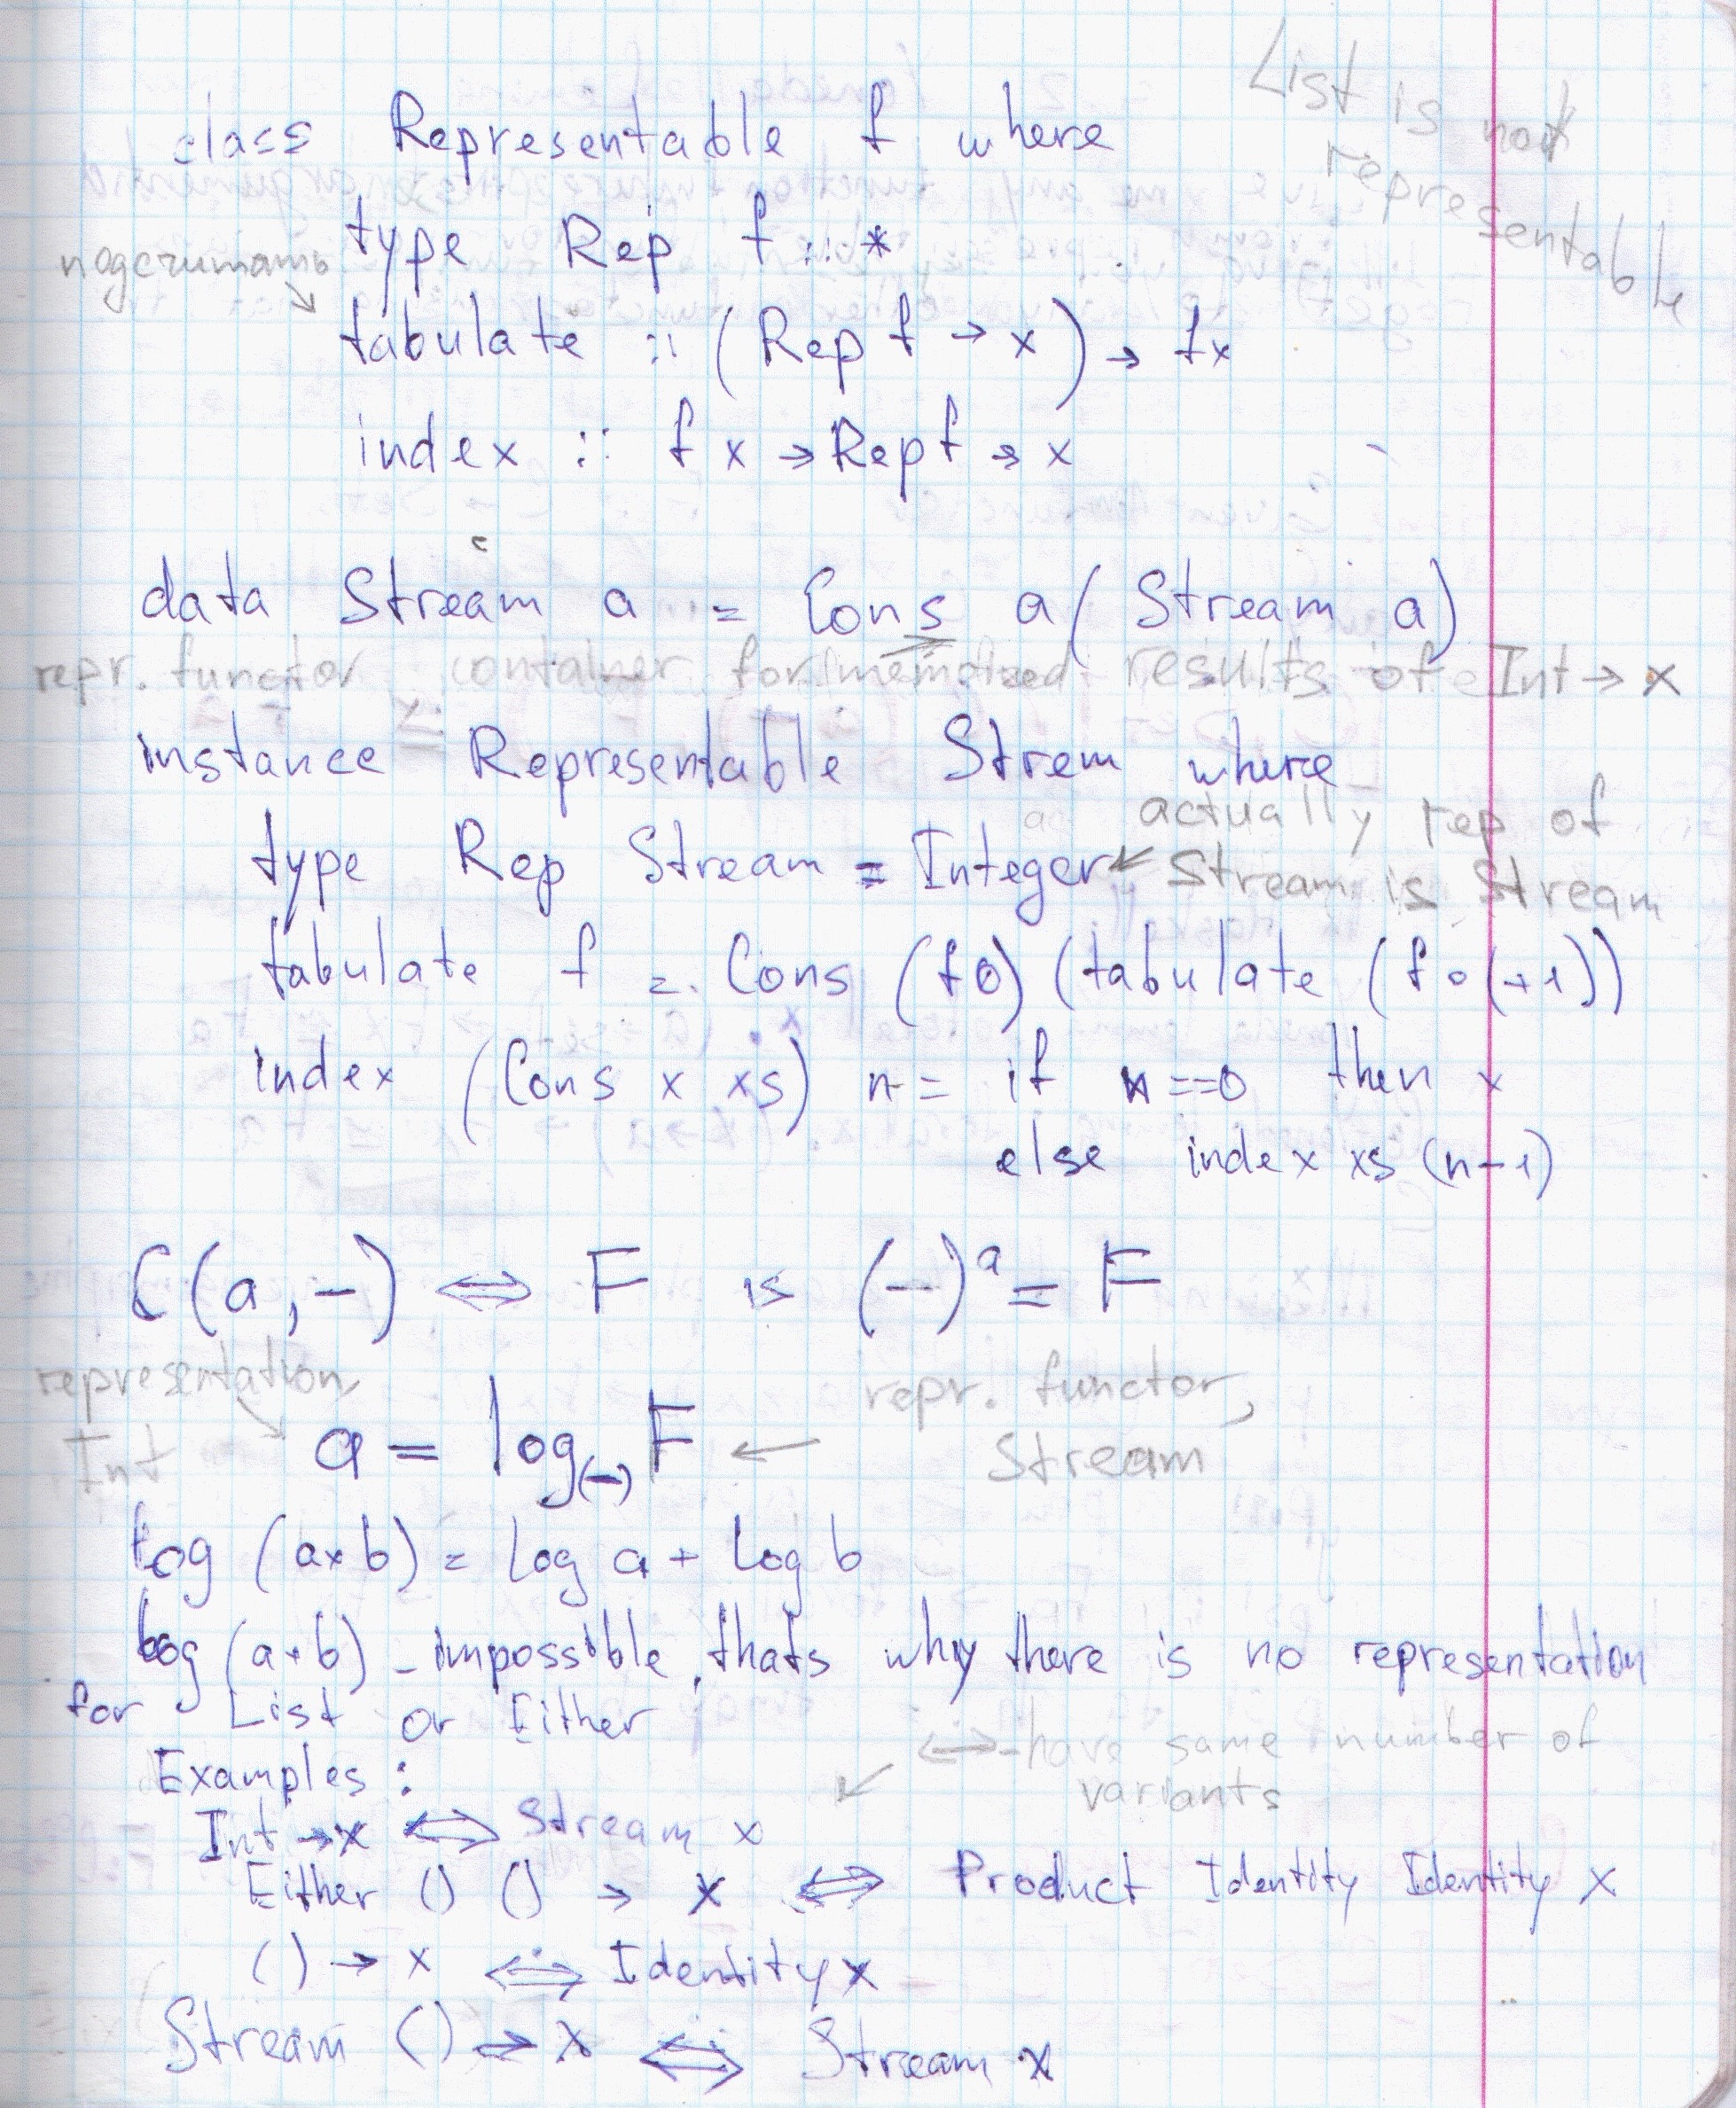 List is not
representable
class Representable f where
type Rep f :: *
подсчитать
tabulate :: (Rep f → x) → fx
index :: f x → Rep f → x
data Stream a = Cons a (Stream a)
repr. functor container for memoized results of Int → x
instance Representable Strem where
actually rep of
type Rep Stream = Integer ← Stream is Stream
tabulate f = Cons (f 0) (tabulate (f ∘ (+1)))
index (Cons x xs) n = if n == 0 then x
else index xs (n-1)
C(a, -) ⇔ F is (-)ᵃ = F
representation, repr. functor,
Int a = log₍₋₎ F ← Stream
log (a×b) = log a + log b
log (a+b) - impossible, thats why there is no representation
for List or Either
⇔ - have same number of
variants
Examples:
Int → x ⇔ Stream x
Either () () → x ⇔ Product Identity Identity x
() → x ⇔ Identity x
Stream () → x ⇔ Stream x